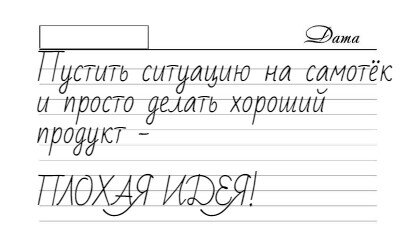 Дата
Пустить ситуацию на самотёк
и просто делать хороший
продукт -
ПЛОХАЯ ИДЕЯ!